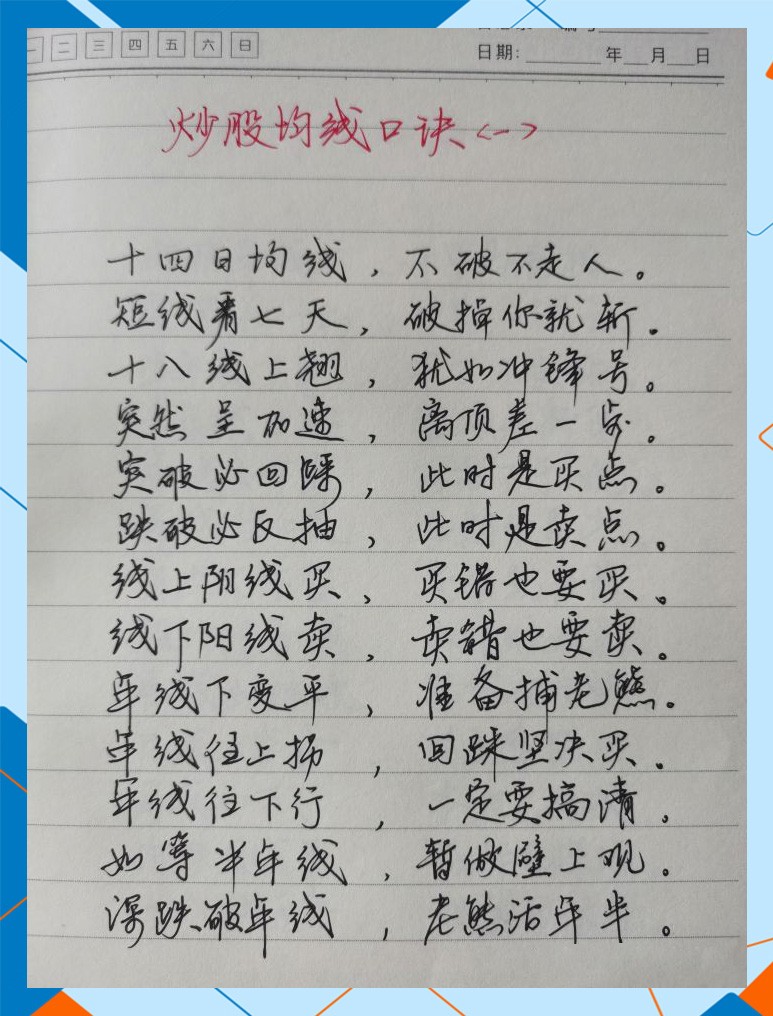 一 二 三 四 五 六 日
日期: 年 月 日
炒股均线口诀<一>
十四日均线，不破不走人。
短线看七天，破掉你就斩。
十八线上翘，犹如冲锋号。
突然呈加速，离顶差一步。
突破必回踩，此时是买点。
跌破必反抽，此时是卖点。
线上阴线买，买错也要买。
线下阳线卖，卖错也要卖。
年线下变平，准备捕老熊。
年线往上拐，回踩坚决买。
年线往下行，一定要搞清，
如等半年线，暂做壁上观。
深跌破年线，老熊活年半。